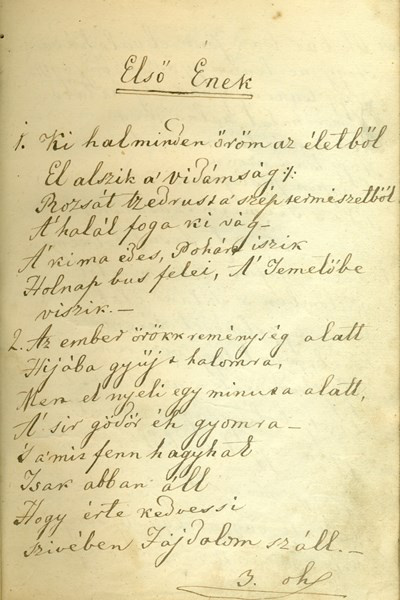 Első Ének
1. Ki hal minden öröm az életből
El alszik a' vidámság %:
Rozsát Czedrust a' szép természetből
A' halál foga ki vág –
A' ki ma édes, Pohárt iszik
Holnap bus felei, A' Temetőbe
viszik. –
2. Az ember örökk reménység alatt
Hijába gyüjt halomra,
Mert el nyeli egy minuta alatt,
A' sir gödör éh gyomra –
S a mit fenn hagyhat
Tsak abban áll
Hogy érte kedvessi
szivében Fájdalom száll. –
3. oh